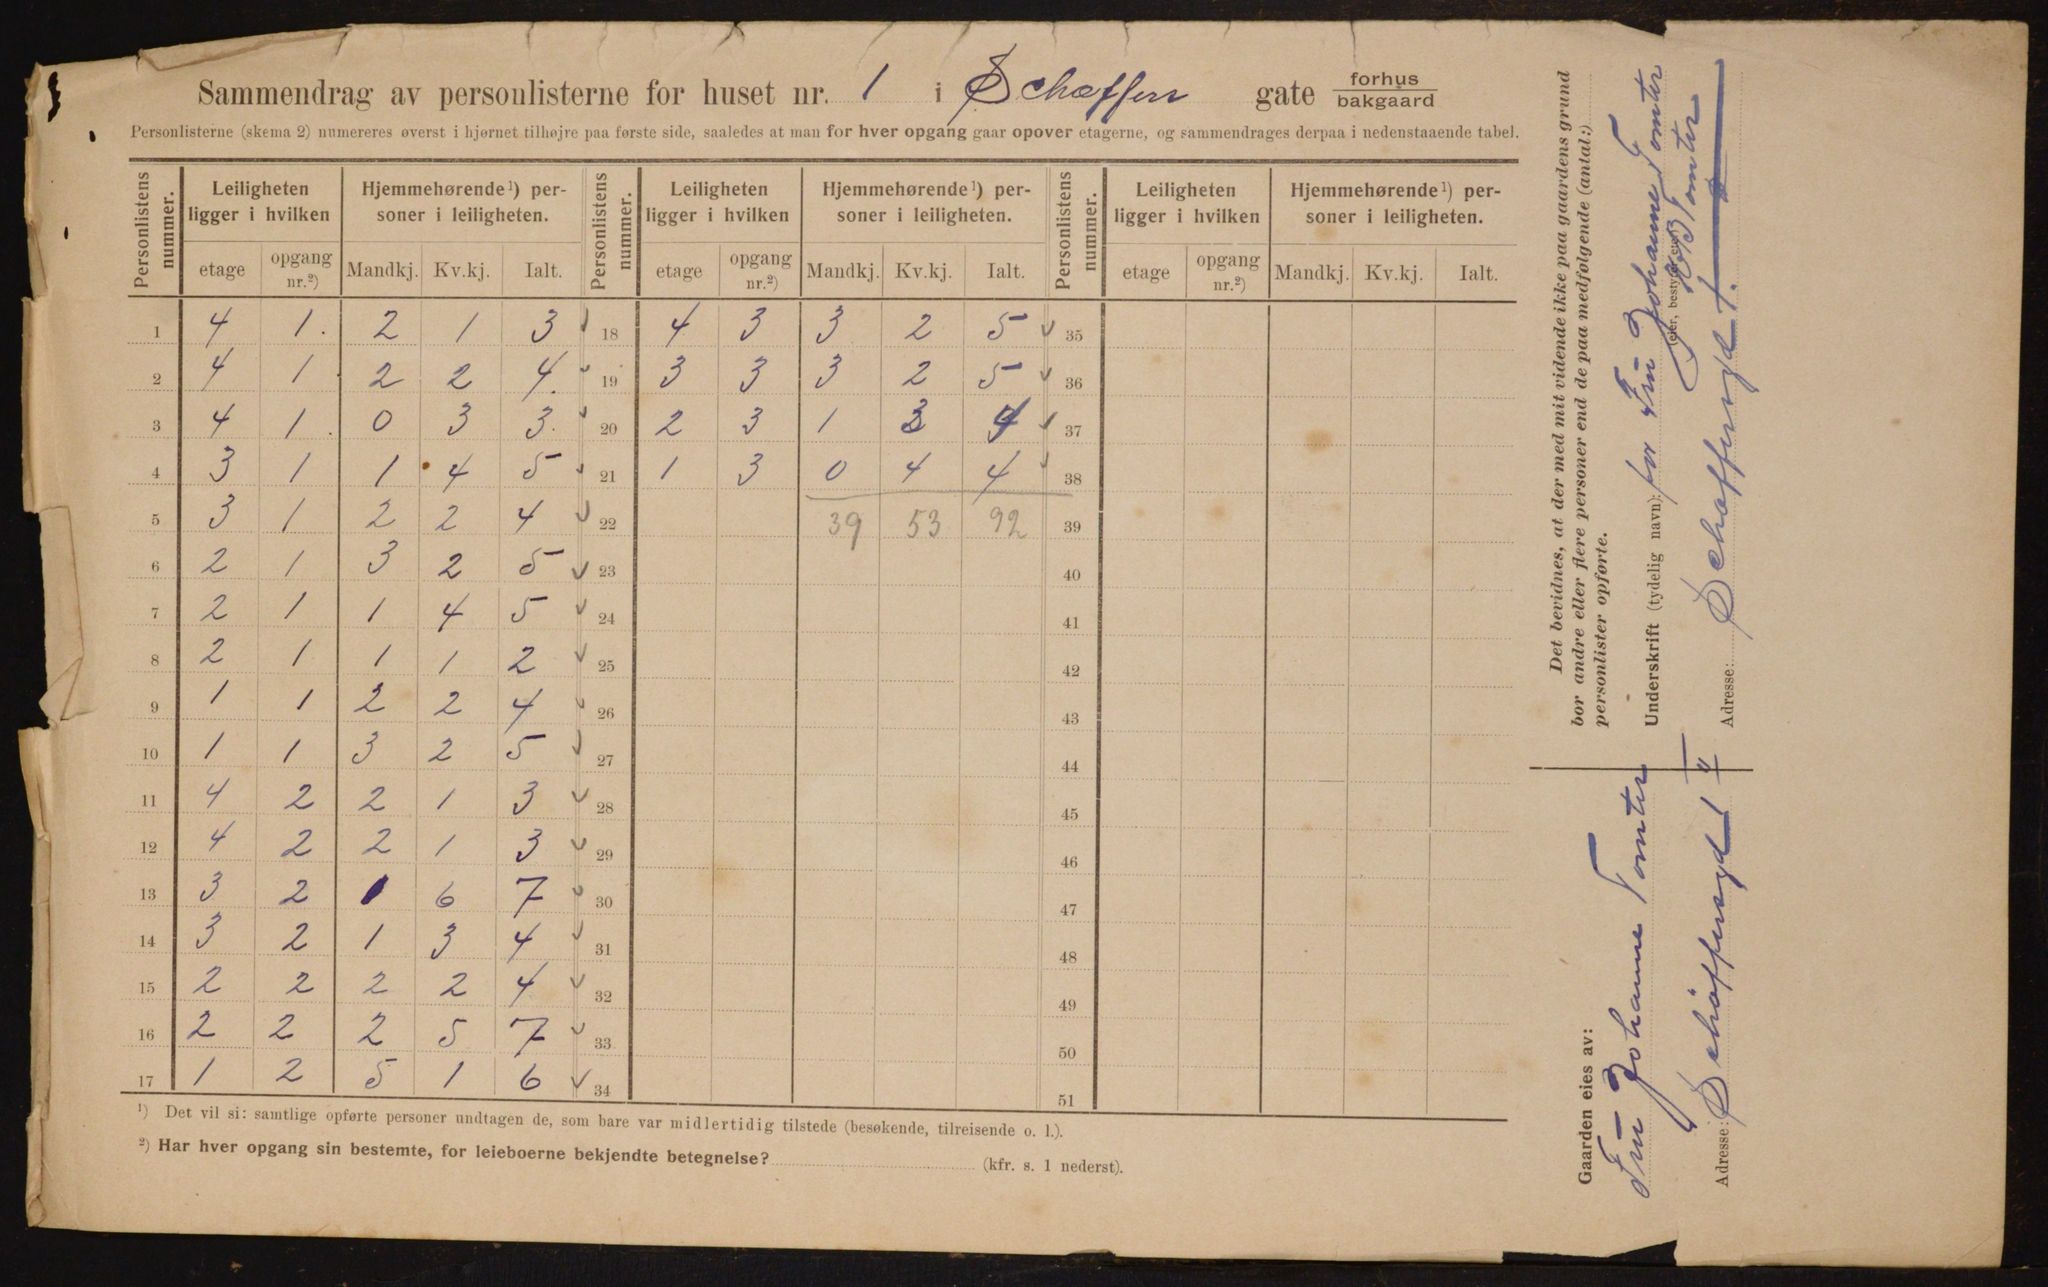 Sammendrag av personlisterne for huset nr. 1 i Schæffers gate forhus / bakgaard
Personlisterne (skema 2) numereres øverst i hjørnet tilhøjre paa første side, saaledes at man for hver opgang gaar opover etagerne, og sammendrages derpaa i nedenstaaende tabel.
Personlistens nummer. Leiligheten ligger i hvilken Hjemmehørende¹) personer i leiligheten. Personlistens nummer. Leiligheten ligger i hvilken Hjemmehørende¹) personer i leiligheten. Personlistens nummer. Leiligheten ligger i hvilken Hjemmehørende¹) personer i leiligheten.
etage opgang nr.²) Mandkj. Kv.kj. Ialt. etage opgang nr.²) Mandkj. Kv.kj. Ialt. etage opgang nr.²) Mandkj. Kv.kj. Ialt.
1 4 1. 2 1 3 18 4 3 3 2 5 35
2 4 1 2 2 4. 19 3 3 3 2 5 36
3 4 1. 0 3 3. 20 2 3 1 3 4 37
4 3 1 1 4 5 21 1 3 0 4 4 38
5 3 1 2 2 4 22 39 53 92 39
6 2 1 3 2 5 23 40
7 2 1 1 4 5 24 41
8 2 1 1 1 2 25 42
9 1 1 2 2 4 26 43
10 1 1 3 2 5 27 44
11 4 2 2 1 3 28 45
12 4 2 2 1 3 29 46
13 3 2 1 6 7 30 47
14 3 2 1 3 4 31 48
15 2 2 2 2 4 32 49
16 2 2 2 5 7 33 50
17 1 2 5 1 6 34 51
¹) Det vil si: samtlige opførte personer undtagen de, som bare var midlertidig tilstede (besøkende, tilreisende o. l.).
²) Har hver opgang sin bestemte, for leieboerne bekjendte betegnelse? (kfr. s. 1 nederst).
Det bevidnes, at der med mit vidende ikke paa gaardens grund
bor andre eller flere personer end de paa medfølgende (antal:)
personlister opførte.
Underskrift (tydelig navn): for Fru Johanne Tomter
(eier, bestyrer etc.)
Tomter
Adresse: Schæffersgd 1.
Gaarden eies av:
Fru Johanne Tomter
Adresse: Schöffersgd 1 II